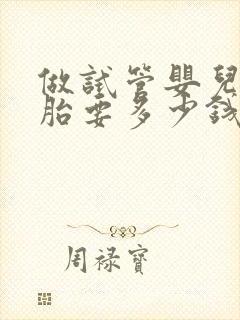 做試管嬰兒
胎要多少錢
周祿寶